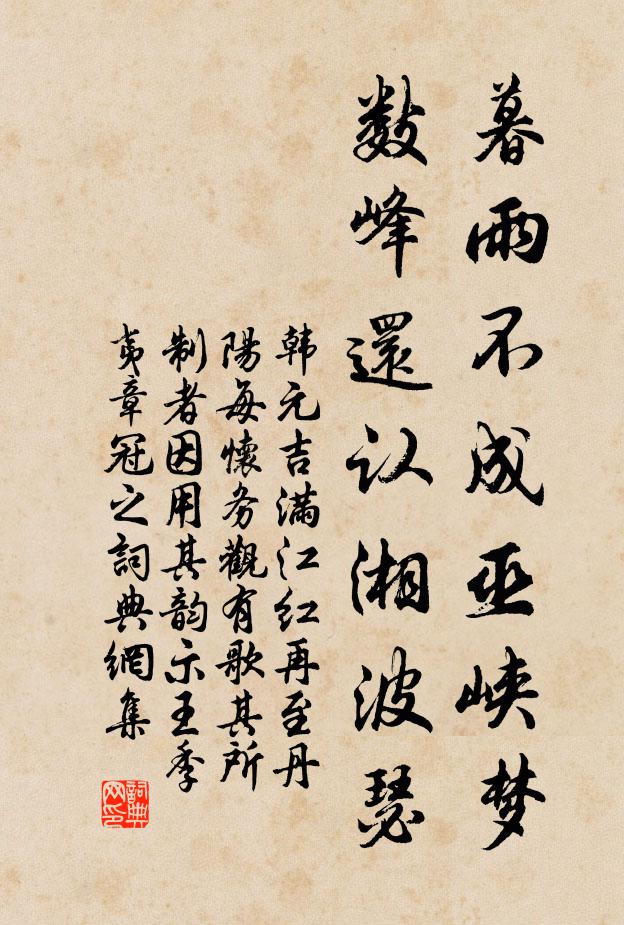 暮雨不成巫峡梦
数峰還认湘波瑟
韩元吉满江红再至丹
陽每懷务觀有歌其所
制者因用其韵示王季
夷章冠之詞典網集
詞典网印